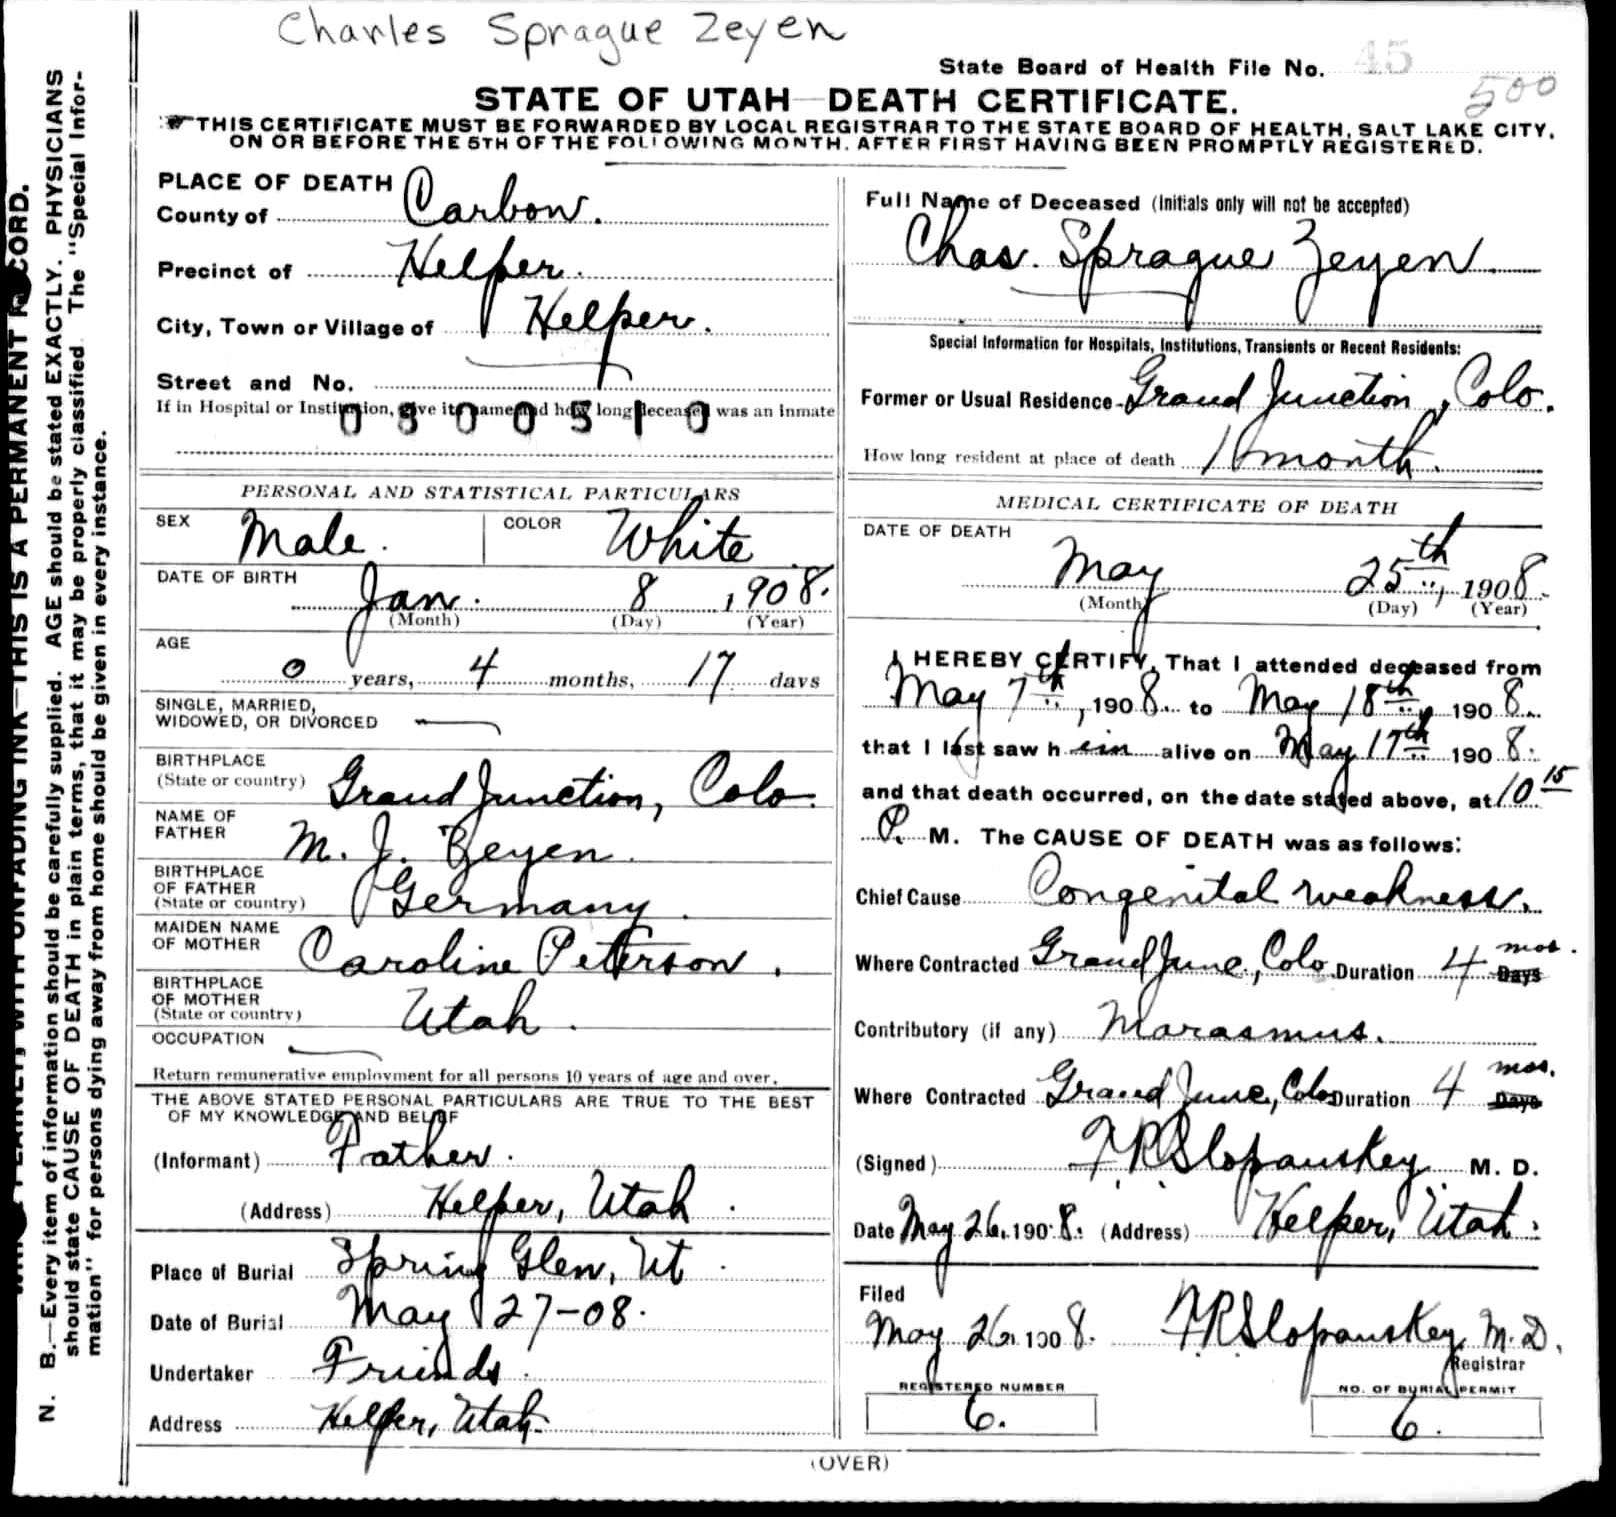 Charles Sprague Zeyen
State Board of Health File No. 45
500
STATE OF UTAH—DEATH CERTIFICATE.
THIS CERTIFICATE MUST BE FORWARDED BY LOCAL REGISTRAR TO THE STATE BOARD OF HEALTH, SALT LAKE CITY,
ON OR BEFORE THE 5TH OF THE FOLLOWING MONTH, AFTER FIRST HAVING BEEN PROMPTLY REGISTERED.
PLACE OF DEATH
County of Carbon.
Precinct of Helper.
City, Town or Village of Helper.
Street and No.
If in Hospital or Institution, give its name and how long deceased was an inmate
0800510
PERSONAL AND STATISTICAL PARTICULARS
SEX Male. COLOR White
DATE OF BIRTH Jan. 8, 1908.
(Month) (Day) (Year)
AGE
0 years, 4 months, 17 days
SINGLE, MARRIED,
WIDOWED, OR DIVORCED —
BIRTHPLACE
(State or country) Grand Junction, Colo.
NAME OF
FATHER M. J. Zeyen.
BIRTHPLACE
OF FATHER
(State or country) Germany.
MAIDEN NAME
OF MOTHER Caroline Peterson.
BIRTHPLACE
OF MOTHER
(State or country) Utah.
OCCUPATION —
Return remunerative employment for all persons 10 years of age and over.
THE ABOVE STATED PERSONAL PARTICULARS ARE TRUE TO THE BEST
OF MY KNOWLEDGE AND BELIEF
(Informant) Father.
(Address) Helper, Utah.
Place of Burial Spring Glen, Ut.
Date of Burial May 27-08.
Undertaker Friends.
Address Helper, Utah.
Full Name of Deceased (Initials only will not be accepted)
Chas. Sprague Zeyen
Special Information for Hospitals, Institutions, Transients or Recent Residents:
Former or Usual Residence Grand Junction, Colo.
How long resident at place of death 1 month.
MEDICAL CERTIFICATE OF DEATH
DATE OF DEATH
May 25th, 1908.
(Month) (Day) (Year)
I HEREBY CERTIFY, That I attended deceased from
May 7th, 1908. to May 18th, 1908.
that I last saw him alive on May 17th 1908.
and that death occurred, on the date stated above, at 10 15
P. M. The CAUSE OF DEATH was as follows:
Chief Cause Congenital weakness.
Where Contracted Grand Junc., Colo Duration 4 mos. Days
Contributory (if any) Marasmus.
Where Contracted Grand Junc., Colo Duration 4 mos. Days
(Signed) F R Slopanskey M. D.
Date May 26, 1908. (Address) Helper, Utah.
Filed
May 26, 1908. F R Slopanskey M. D.
Registrar
REGISTERED NUMBER
6.
NO. OF BURIAL PERMIT
6.
(OVER)
PLAINLY, WITH UNFADING INK—THIS IS A PERMANENT RECORD.
N. B.—Every item of information should be carefully supplied. AGE should be stated EXACTLY. PHYSICIANS
should state CAUSE OF DEATH in plain terms, that it may be properly classified. The "Special Infor-
mation" for persons dying away from home should be given in every instance.